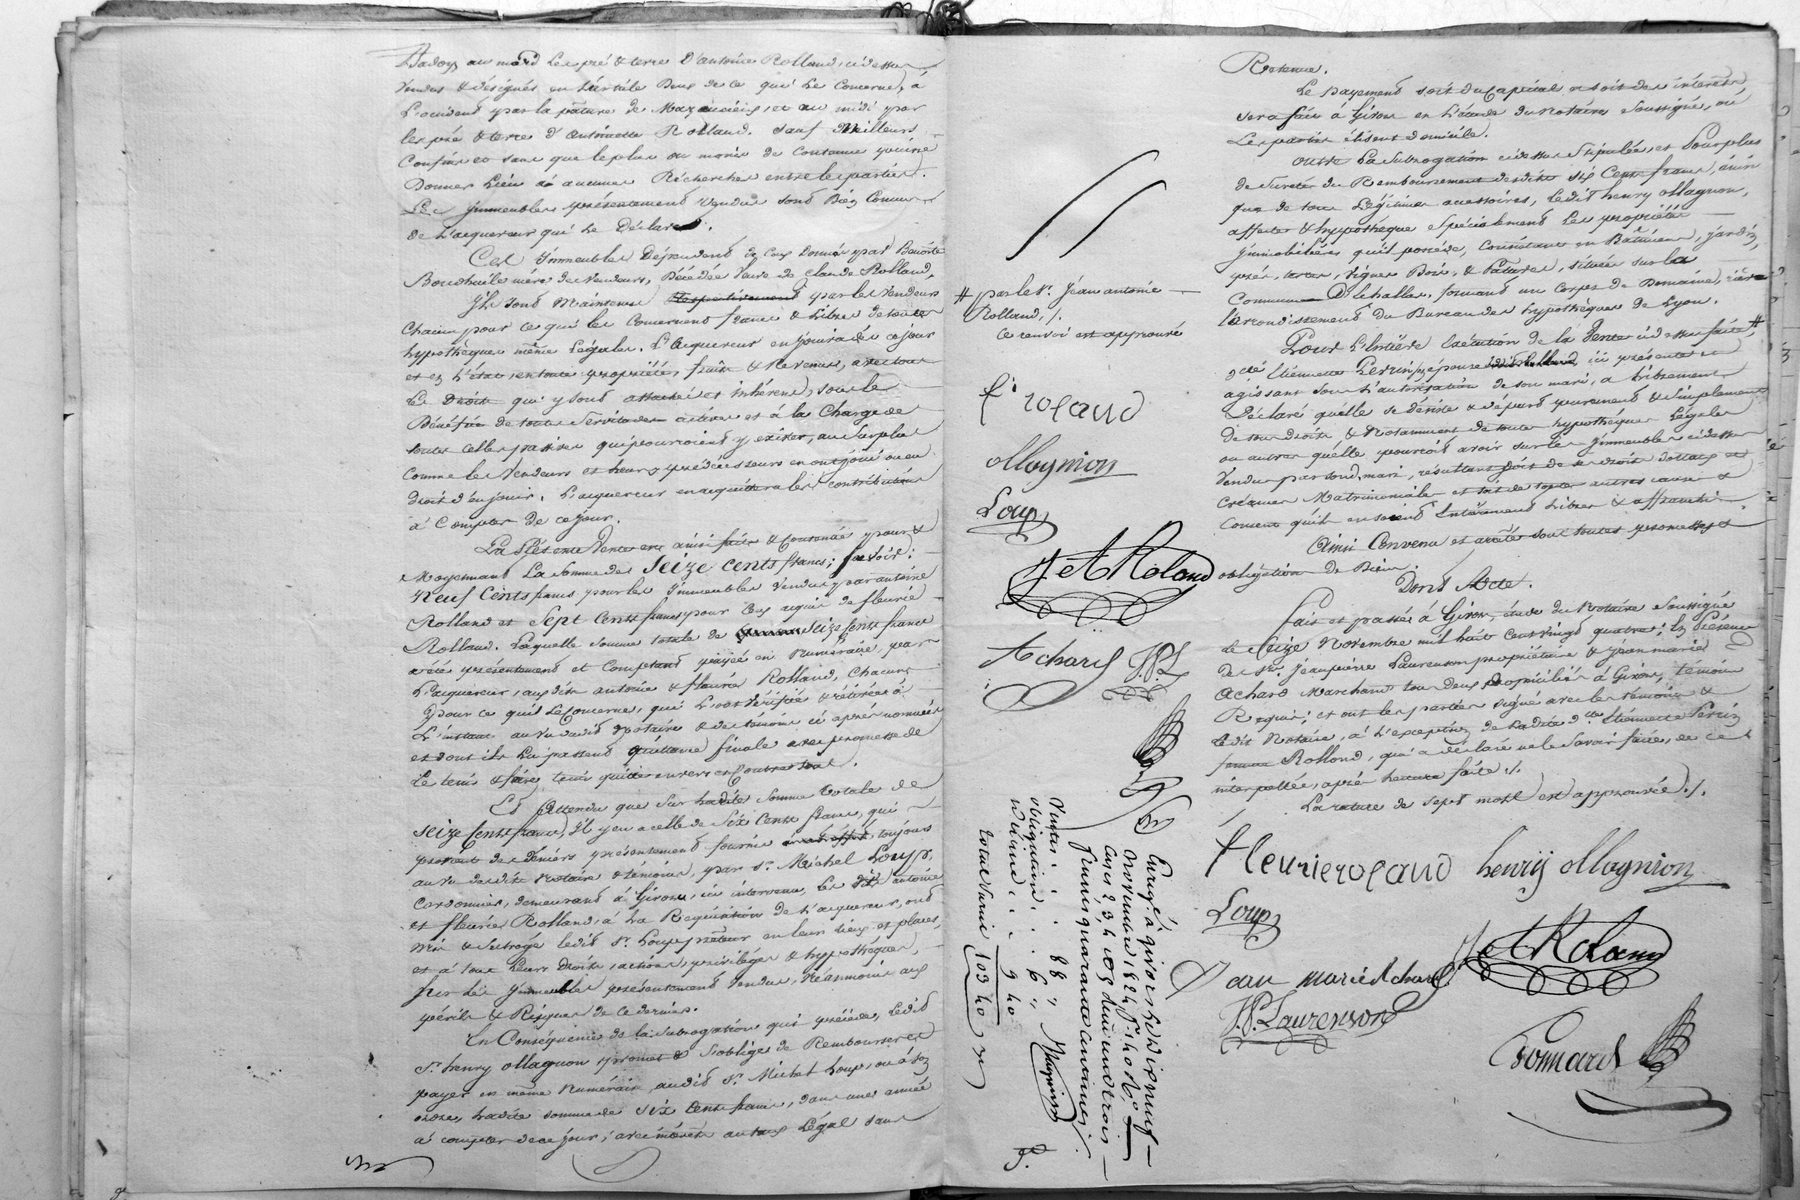 au nord les pré & terre d'antoine Rolland, ci dessus
vendus & désignés en l'article Deux de ce qui le concerne, à
L'occident par la pature de et au midi par
les pré & terre d'antoinette Rolland. Sauf meilleurs
Confins et sans que le plus ou moins de Contenue puisse
Donner Lieu à aucunes Recherches entre les parties.
Les Jmmeubles présentement vendus sont Bien Connus
de L'acquereur qui Le Déclare.
Ces Jmmeubles Dépendent de ceux Donnés par Benoite
mère des Vendeurs, Décédée Veuve de Claude Rolland.
Jls sont Maintenus par les Vendeurs
Chacun pour ce qui les Concernent francs & Libres de toutes
hypothèques même Légales. L'acquereur en jouira dès ce jour
et en L'état, en toute propriété, fruits & Revenus, avec tous
Le Droits qui y sont attachés et inhérens, sous le
Bénéfice de toutes Servitudes actives et à la Charge de
toutes celles passives qui pourroient y exister, au Surplus
Comme les Vendeurs et leurs prédécesseurs en ont joui ou eu
Droit d'en jouir. L'acquereur en acquittera les contributions
à Compter de ce jour.
La Présente Vente est ainsi faite & Consentie pour &
Moyennant La Somme de Seize Cents francs; savoir:
Neuf Cents francs pour les Jmmeubles Vendus par antoine
Rolland et Sept Cents francs pour ceux acquis de fleurie
Rolland. Laquelle Somme totale de Seize Cents francs
a été présentement et Comptant payée en Numéraire, par
L'acquereur, auxdits antoine & fleurie Rolland, Chacun
pour ce qui le Concerne, qui L'ont Vérifiée & retirée à
L'instant au Vu dudit Notaire & des témoins ci après nommés
et dont ils Lui passent quittance finale avec promesse de
Le tenir & faire tenir quitte envers et Contre tous.
Et Attendu que Sur Ladite Somme totale de
Seize Cents francs, Jl y en a celle de Six Cents francs, qui
provient de deniers présentement fournis toujours
au Vu desdits Notaire & témoins, par Sr. Michel Loup,
Cordonnier, demeurant à Givors, ici intervenu, Les dits antoine
et fleurie Rolland, à La Réquisition de L'acquereur, ont
Mis & Subrogé ledit Sr. Loup prêteur en leurs lieux et places,
et à tous Leurs Droits, actions, privilèges & hypothèques,
sur les Jmmeubles présentement Vendus, Néanmoins aux
périls & Risques de ce dernier.
En Conséquence de la Subrogation qui précède, Ledit
Sr. henry ollagnon promet & S'oblige de Rembourser et
payer en même Numéraire audit Sr. Michel Loup, ou à son
ordre, Ladite Somme de Six Cents francs, dans une année
à compter de ce jour, avec intérêts au taux Légal sans
# par le Sr. Jean antoine
Rolland, /.
Ce renvoi est approuvé
f. roland
ollagnion
Loup
J et A Roland
Achard J.P.L
Enrgé à givors le dix neuf
novembre 1824
quarante centimes
Vente : 88 "
obligation : 6 "
Dixième : 9 40
total 103 40
Retenue.
Le payement soit du Capital ou soit des intérêts
sera fait à Givors en L'étude du Notaire soussigné, où
Les parties élisent domicile.
outre La Subrogation ci dessus Stipulée, et Pour plus
de Sureté du Remboursement desdits Six Cents francs, ainsi
que de tous Légitimes accessoires, Ledit henry ollagnon,
affecte & hypothèque Spécialement Les propriétés
Jmmobilières qu'il possède, Consistant en Bâtimens, Jardin,
prés, terres, Vignes, Bois, & Patures, situées sur la
Commune formant un Corps de Domaine,
L'arrondissement du Bureau des hypothèques de Lyon.
Pour L'Entière Exécution de la Vente ci dessus faite, #
Étiennette Perrin, épouse ici présente &
agissant sous L'autorisation de son mari, a Librement
Déclaré qu'elle se désiste & départ purement & Simplement
de tous Droits & Notamment de toutes hypothèques Légales
ou autres qu'elle pourroit avoir sur les Jmmeubles ci dessus
Vendus par son mari, résultant soit de ses Droits dotaux et
Créances Matrimoniales et soit de toutes autres causes &
Consent qu'ils en soient Entièrement Libres & affranchis.
Ainsi Convenu et arrêté sous toutes promesses &
obligation de Biens.
Dont Acte.
Fait et passé à Givors, étude du Notaire Soussigné
Le Seize Novembre mil huit cent vingt quatre; En Présence
de Sr. Jean pierre Laurenson propriétaire & jean marie
Achard Marchand tous Deux Domiciliés à Givors, témoins
Requis; et ont les parties signé avec les témoins &
ledit Notaire, à L'exception de Ladite Étiennette Perrin
femme Rolland, qui a déclaré ne le Savoir faire, de ce
interpellée, après Lecture faite /.
La rature de sept mots est approuvée /.
fleurie roland henrÿ ollagnion
Loup
J et A Roland
Jean marie Achard
J.P. Laurenson